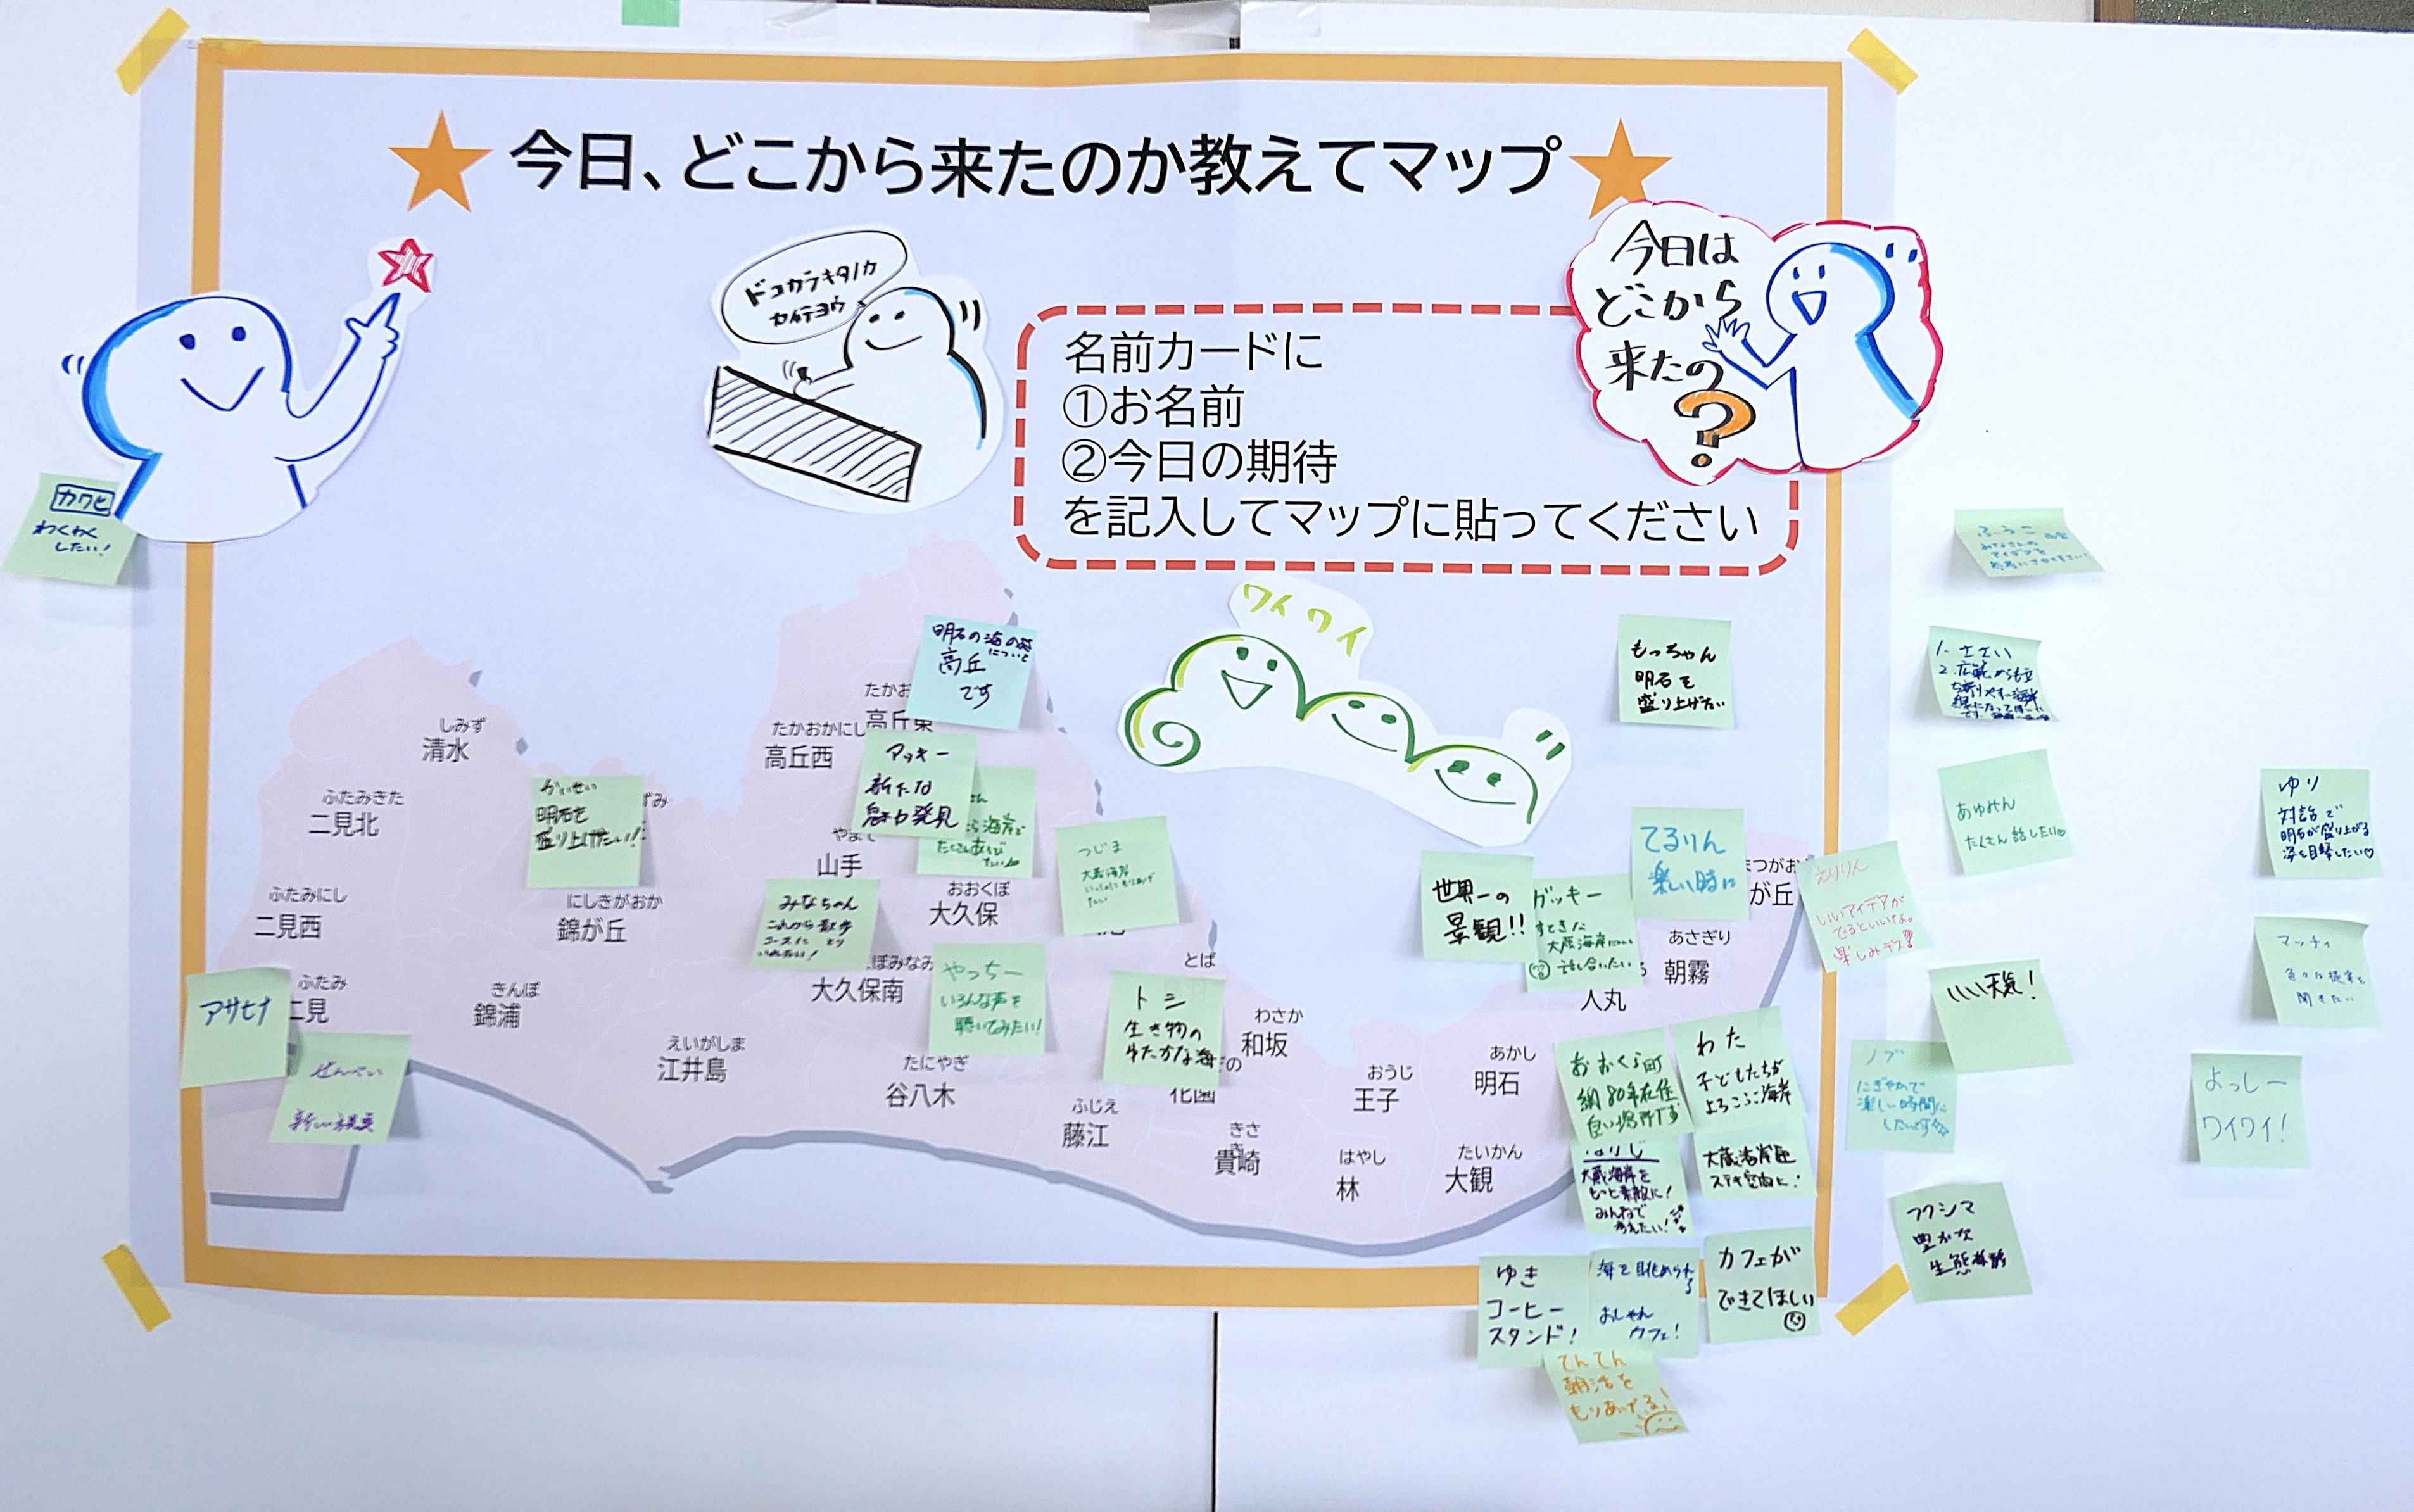 今日、どこから来たのか教えてマップ
ドコカラキタノカ
カイテヨウ
名前カードに
①お名前
②今日の期待
を記入してマップに貼ってください
今日は
どこから
来たの
?
カワヒ
わくわく
したい!
ワイワイ
明石の海の苗
について
高丘
です
もっちゃん
明石を
盛り上げたい
ふうこ
みなさんの
アイデアを
1. ささい
2.
しみず
清水
たかお
高丘東
たかおかにし
高丘西
アッキー
新たな
魅力発見
かいせい
明石を
盛り上げたい!!
ふたみきた
二見北
やまて
山手
さん
海岸で
つじま
大蔵海岸
てるりん
楽しい時に
まつがお
が丘
あゆみん
たくさん話したい
ゆり
対話で
明石が盛り上がる
姿を目撃したい♡
ふたみにし
二見西
にしきがおか
錦が丘
みなちゃん
これから散歩
コースに とり
いれたい!
おおくぼ
大久保
世界一の
景観!!
ガッキー
すてきな
大蔵海岸について
話し合いたい
えりりん
いいアイデアが
でるといいな。
楽しみデス!
あさぎり
朝霧
マッチィ
色々な提案を
聞きたい
アサヒナ
ふたみ
二見
きんぽ
錦浦
ぼみなみ
大久保南
やっちー
いろんな声を
聴いてみたい!
とば
トシ
生き物の
ゆたかな海
わさか
和坂
人丸
いい天気!
ぜんぺい
新しい発見
えいがしま
江井島
たにやぎ
谷八木
ぞの
花園
おうじ
王子
あかし
明石
おおくら町
約80年在住
良い場所です
わた
子どもたちが
よろこぶ海岸
ノブ
にぎやかで
楽しい時間に
したいです
よっしー
ワイワイ!
ふじえ
藤江
きさき
貴崎
はやし
林
たいかん
大観
大蔵海岸を
もっと素敵に!
みんなで
考えたい!
大蔵海岸
ステキ空間に!
フクシマ
豊かな
生態
ゆき
コーヒー
スタンド!
海を眺められる
おしゃれ
カフェ!
カフェが
できてほしい
てんてん
朝活を
もりあげる!